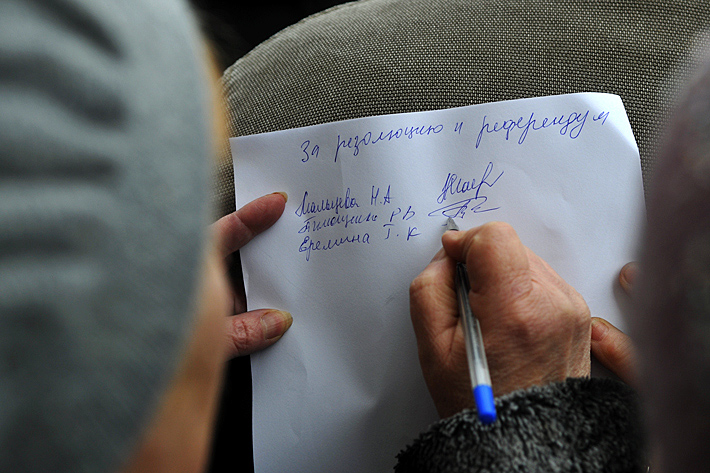 За резолюцию и референдум
Мальцева Н.А
Тимощенко Р.В
Еремина Г.К